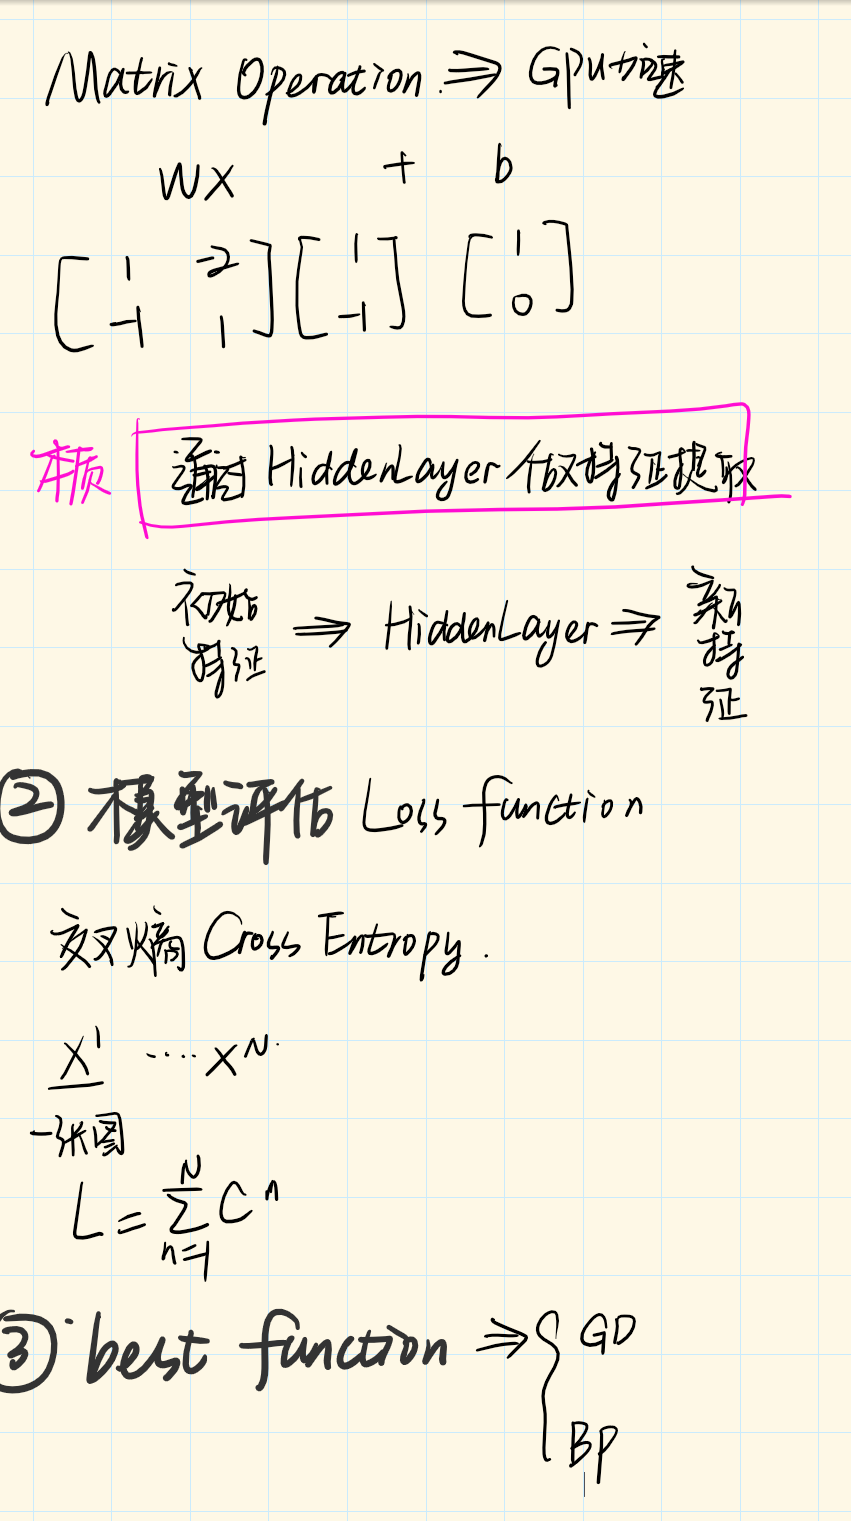 Matrix Operation. ⇒ Gpu加速
WX + b
[1 -2 [1 [1
-1 1] -1] 0]
本质 通过 HiddenLayer 做特征提取
初始特征 ⇒ HiddenLayer ⇒ 新特征
② 模型评估 Loss function
交叉熵 Cross Entropy.
X¹ ····· X^N.
一张图
L = Σ_{n=1}^{N} C^n
③ best function ⇒ { GD
BP